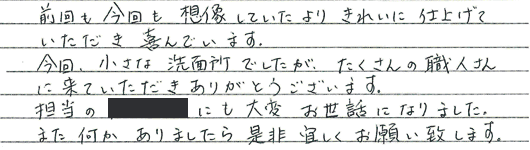 前回も今回も想像していたよりきれいに仕上げて
いただき喜んでいます。
今回、小さな洗面所でしたが、たくさんの職人さん
に来ていただきありがとうございます。
担当の にも大変お世話になりました。
また何かありましたら是非宜しくお願い致します。